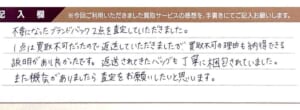 記入欄 ※今回ご利用いただきました買取サービスの感想を、手書きにてご記入お願いします。
不要になったブランドバック2点を査定していただきました。
1点は買取不可だったので返送していただきましたが買取不可の理由も納得できる
説明があり良かったです。返送されてきたバッグも丁寧に梱包されていました。
また機会がありましたら査定をお願いしたいと思います。